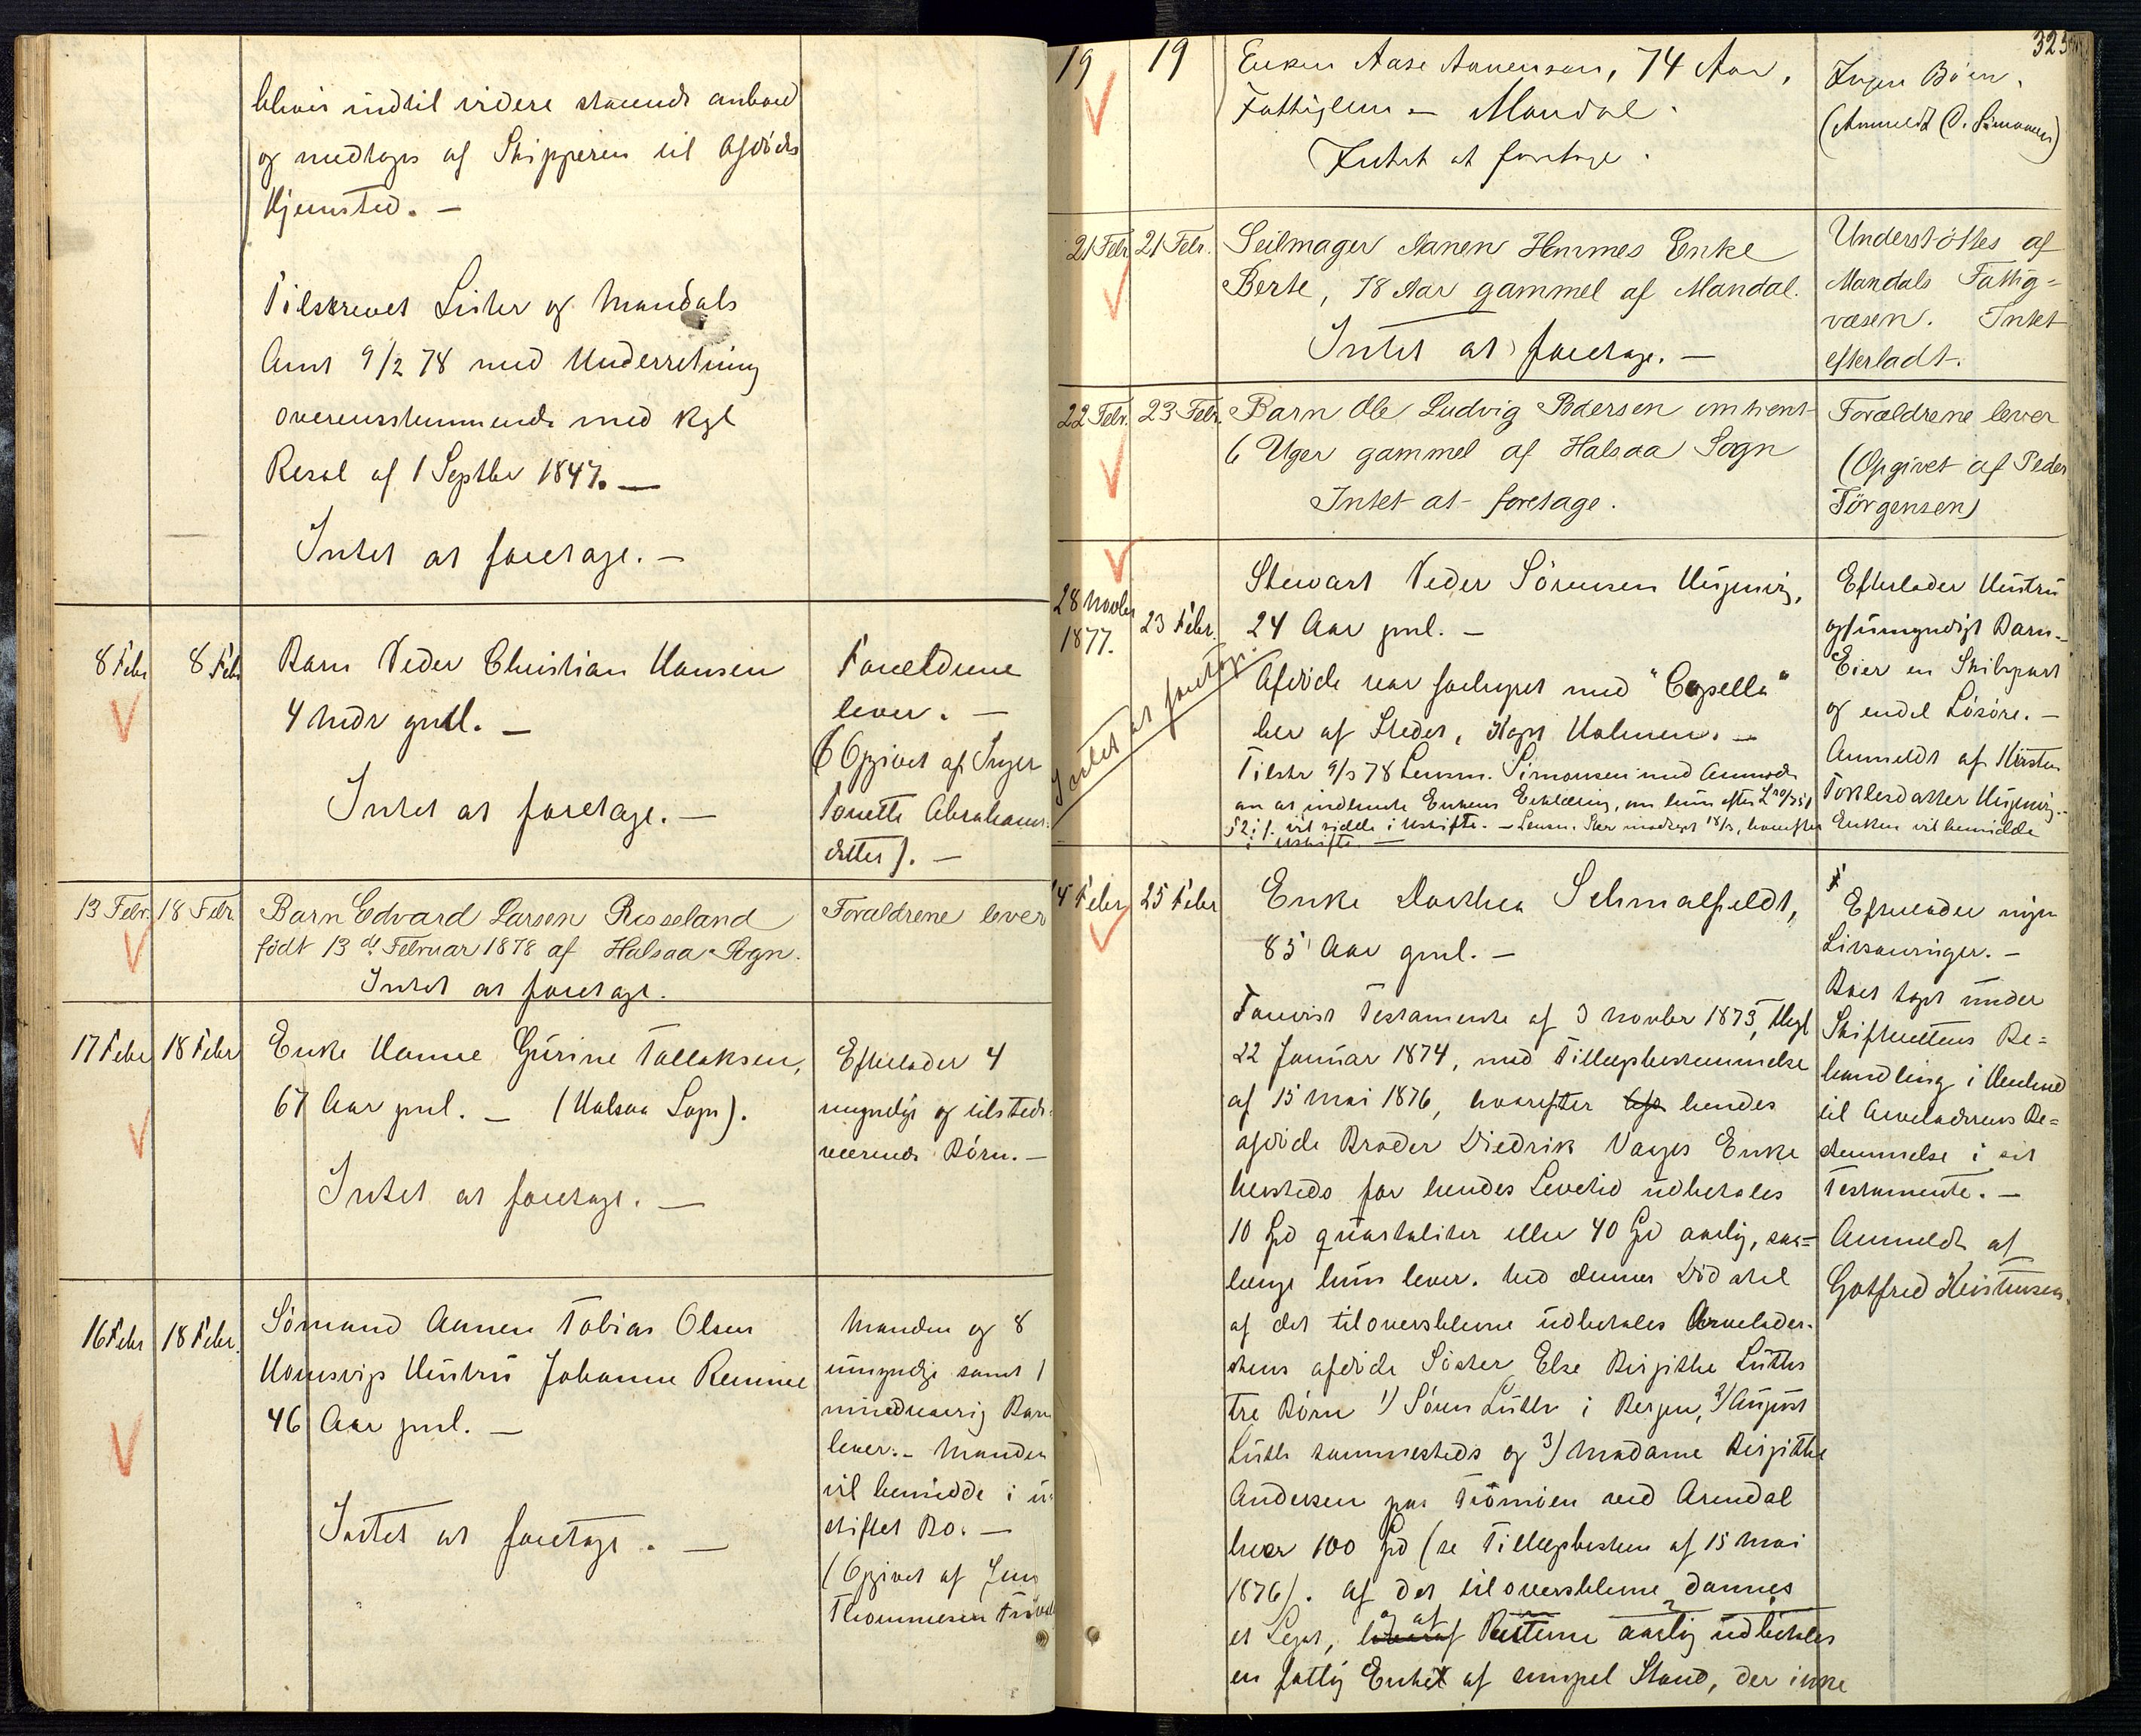 blives indtil videre staaende ombord
og medtages af Skipperen til Afdödes
Hjemsted. —
Tilskrevet Lister og Mandals
Amt 9/2 78 med Underretning
overensstemmende med Kgl
Resol af 1 Septbr 1847. —
Intet at foretage. —
8 Febr
8 Feb
Barn Peder Christian Hansen
4 Mdr gml. —
Intet at foretage. —
Forældrene
lever. —
(Opgivet af Inger
Tonette Abrahams-
datter). —
13 Febr.
18 Febr.
Barn Edvard Larsen Risseland
födt 13 de Februar 1878 af Halsaa Sogn.
Intet at foretage.
Forældrene lever
17 Febr
18 Febr
Enke Hanne Gurine Tallaksen,
67 Aar gml. — (Halsaa Sogn).
Intet at foretage. —
Efterlader 4
myndige og tilsteds-
værende Börn. —
16 Febr
18 Febr.
Sömand Aanen Tobias Olsen
Hustru Johanne
46 Aar gml. —
Intet at foretage. —
Manden og 8
umyndige samt 1
mindreaarig Barn
lever. — Manden
vil hensidde i u-
skiftet Bo. —
(Opgivet af Jens
Thommesen
325
19
19
Enken Aase Aanensen, 74 Aar,
Fattiglem — Mandal.
Intet at foretage.
Ingen Börn.
(Anmeldt O. Simonsen)
21 Febr
21 Febr.
Seilmager Aanen Hemmes Enke
Berte, 78 Aar gammel af Mandal.
Intet at foretage. —
Understöttes af
Mandals Fattig=
væsen. Intet
efterladt.
22 Febr.
23 Febr.
Barn Ole Ludvig Pedersen omtrent
6 Uger gammel af Halsaa Sogn
Intet at foretage.
Forældrene lever
(Opgivet af Peder
Jörgensen)
28 Novbr
1877.
23 Febr.
Stewart Peder Sörensen
24 Aar gml. —
Intet at foretage.
Afdöde var forhyret med "Capella"
her af Stedet, Kapt Holmen. —
Tilskr 9/3 78 Lensm. Simonsen med Anmod-
om at indhente Enkens Erklæring, om hun efter L 30/7 51
§ 21. vil sidde i Uskifte. — Lensm. Skr modtaget 18/3, hvorefter Enken vil hensidde
i Uskifte. —
Efterlader Hustru
og 1 umyndigt Barn. —
Eier en Skibspart
og endel Lösöre. —
Anmeldt af Kirsten
14 Febr
25 Febr
Enke Dorthea Schmalfeldt,
85 Aar gml. —
Forevist Testamente af 3 Novbr 1873, tlgl
22 Januar 1874, med Tillægsbestemmelse
af 15 Mai 1876, hvorefter hendes
afdöde Broder Diedrik Vauges Enke
hersteds for hendes Levetid udbetales
10 Spd qvartaliter eller 40 Spd aarlig, saa=
længe hun lever. Ved dennes Död skal
af det tiloversblevne udbetales Arvelader-
skens afdöde Söster Else Birgithe Lütks
tre Börn 1) Sören Lütk i Bergen, 2) August
Lütk sammesteds og 3) Madame Birgitte
Andersen paa Tromöen ved Arendal
hver 100 Spd (se Tillægsbestem af 15 Mai
1876). Af det tiloversblevne dannes
et Legat, og af Renterne aarlig udbetales
en fattig Enke af simpel Stand, der ikke
Efterlader ingen
Livsarvinger. —
Boet tages under
Skifterettens Be=
handling i Henhold
til Arveladerens Be=
stemmelse i sit
Testamente. —
Anmeldt af
Gotfred Christensen.